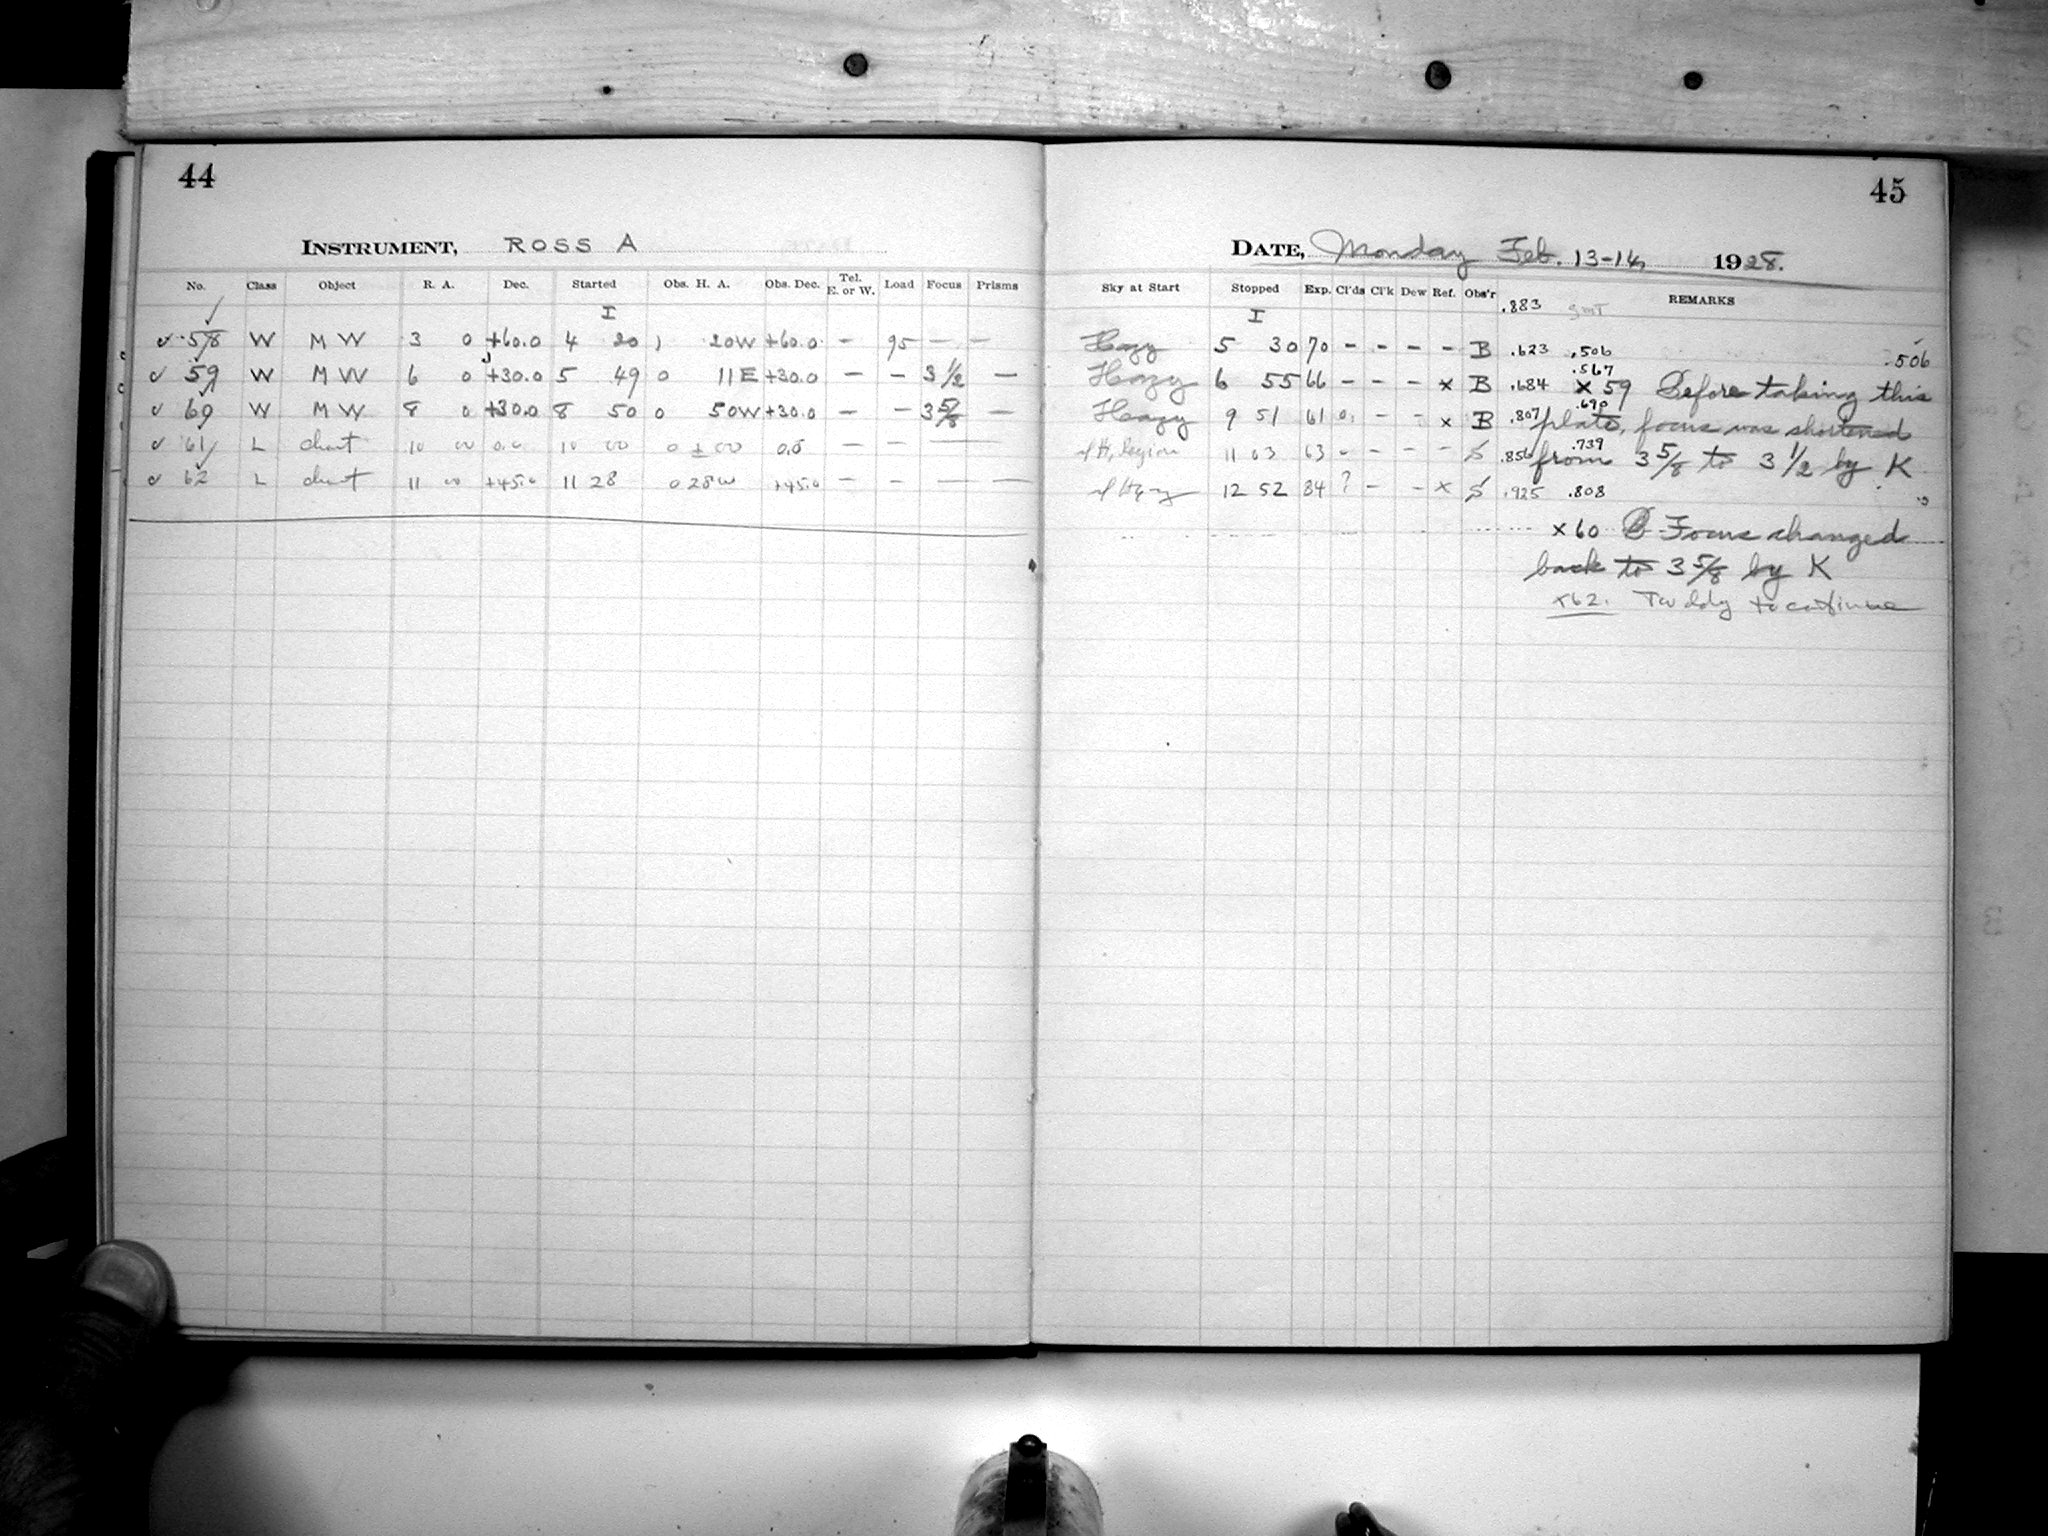 44
INSTRUMENT, ROSS A
No. Class Object R. A. Dec. Started Obs. H. A. Obs. Dec. Tel. E. or W. Load Focus Prisms
I
58 W M W 3 0 +60.0 4 20 1 20W +60.0 - 95 - -
59 W M W 6 0 +30.0 5 49 0 11E +30.0 - - 3 1/2 -
60 W M W 8 0 +30.0 8 50 0 50W +30.0 - - 3 5/8 -
61 L chart 10 00 0.0 10 00 0 ± 00 0.0 - -
62 L chart 11 00 +45.0 11 28 0 28W +45.0 - - - -
45
DATE, Monday Feb. 13-14, 1928.
Sky at Start Stopped Exp. Cl'ds Cl'k Dew Ref. Obs'r REMARKS
I .883 GMT
Hazy 5 30 70 - - - - B .623 .506 .506
.567
Hazy 6 55 66 - - - x B .684 x 59 Before taking this
.690
Hazy 9 51 61 0. - - x B .807 plate, focus was shortened
.739
11 03 63 - - - - S .856 from 3 5/8 to 3 1/2 by K
12 52 84 ? - - x S .925 .808
x 60 B Focus changed
back to 3 5/8 by K
x62. to continue